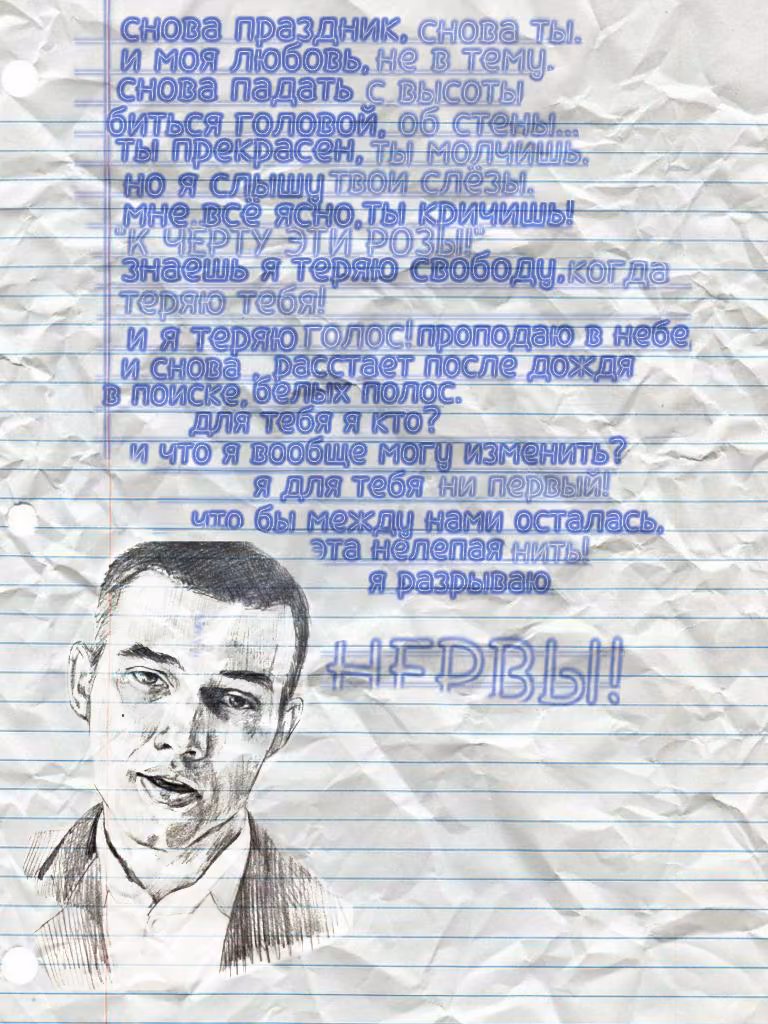 снова праздник, снова ты.
и моя любовь, не в тему.
снова падать с высоты
биться головой, об стены...
ты прекрасен, ты молчишь.
но я слышу твои слёзы.
мне всё ясно, ты кричишь!
"К ЧЕРТУ ЭТИ РОЗЫ!"
знаешь я теряю свободу, когда
теряю тебя!
и я теряю голос! проподаю в небе
и снова , расстает после дождя
в поиске, белых полос.
для тебя я кто?
и что я вообще могу изменить?
я для тебя ни первый!
что бы между нами осталась,
эта нелепая нить!
я разрываю
НЕРВЫ!